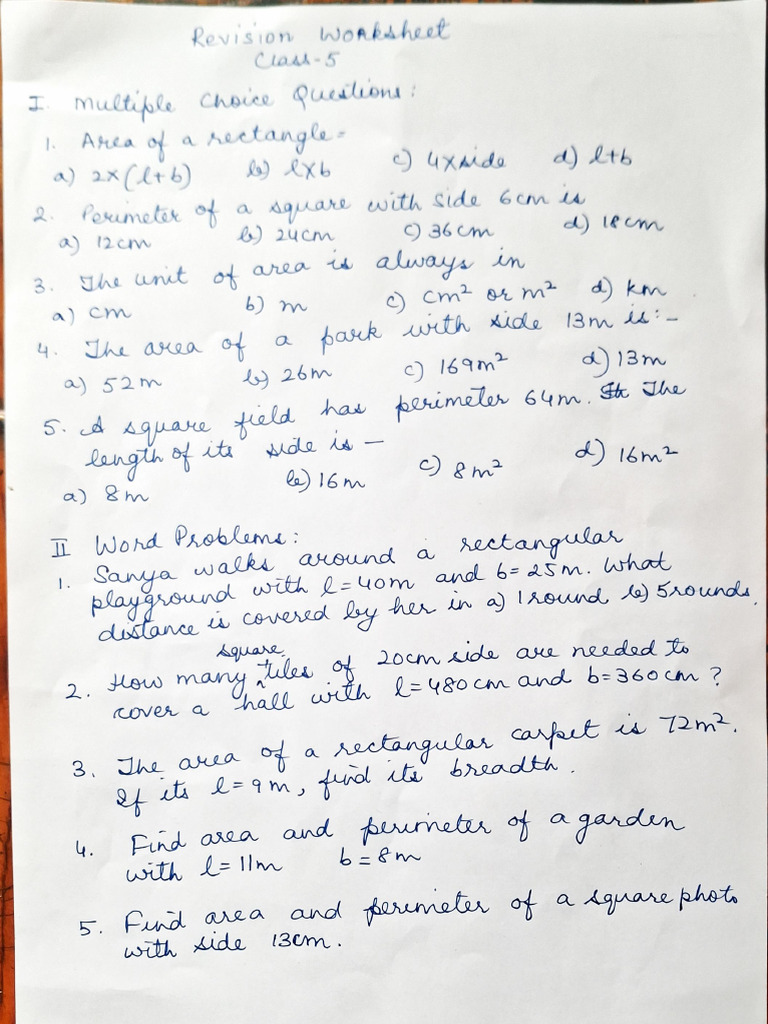 Revision Worksheet
Class-5
I. Multiple Choice Questions:
1. Area of a rectangle=
a) 2×(l+b) b) l×b c) 4×side d) l+b
2. Perimeter of a square with side 6cm is
a) 12cm b) 24cm c) 36cm d) 18cm
3. The unit of area is always in
a) cm b) m c) cm² or m² d) km
4. The area of a park with side 13m is:-
a) 52m b) 26m c) 169m² d) 13m
5. A square field has perimeter 64m. The
length of its side is -
a) 8m b) 16m c) 8m² d) 16m²
II Word Problems:
1. Sanya walks around a rectangular
playground with l=40m and b=25m. What
distance is covered by her in a) 1 round b) 5 rounds.
2. How many square tiles of 20cm side are needed to
cover a hall with l=480cm and b=360cm?
3. The area of a rectangular carpet is 72m².
If its l=9m, find its breadth.
4. Find area and perimeter of a garden
with l=11m b=8m
5. Find area and perimeter of a square photo
with side 13cm.